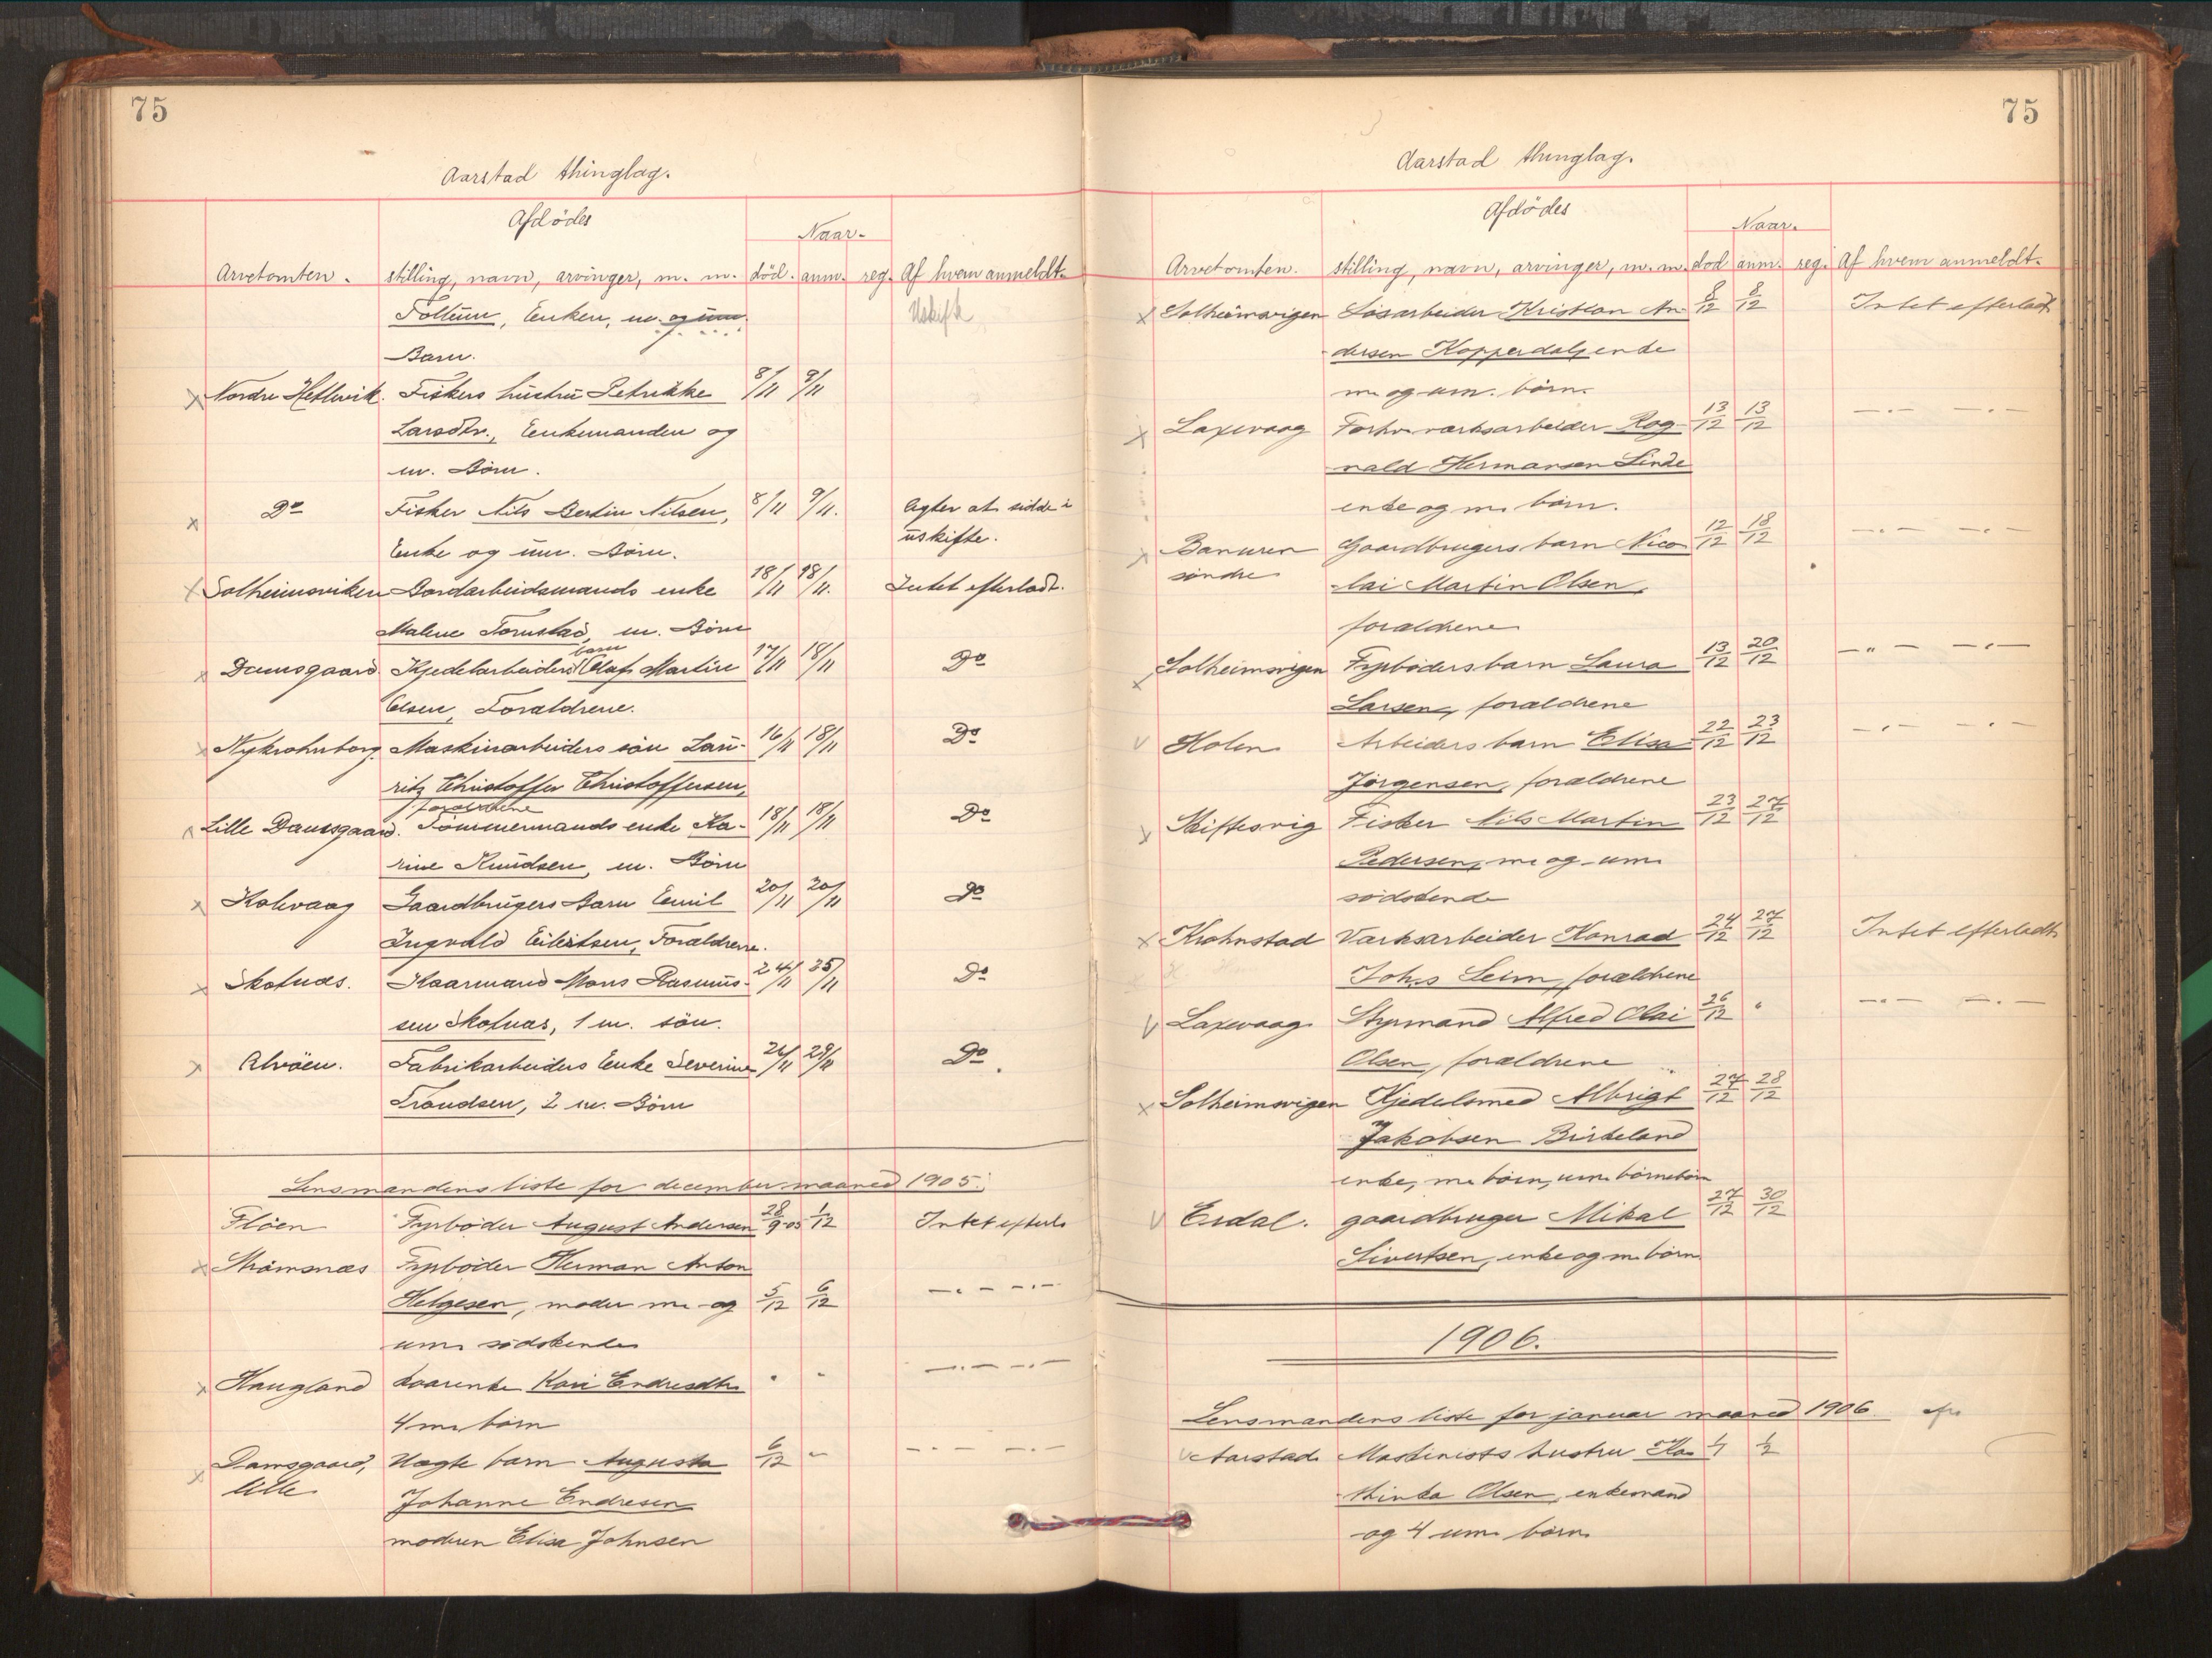 75
Aarstad thinglag.
Afdödes
Naar.
Arvetomten. stilling, navn, arvinger, m. m. död. anm. reg. Af hvem anmeldt.
Enken, m. og um. Uskifte
Barn.
x Nordre Hetlevik. Fiskers hustru Petrikke 8/11 9/11
Larsdtr., Enkemanden og
m. Börn.
x Do Fisker Nils Bertin Nilsen, 8/11 9/11. Agter at sidde i
Enke og um. Börn. uskifte.
x Solheimsviken Bordarbeidsmands enke 18/11 18/11. Intet efterladt.
Malene Tornstad, m. Börn
barn
x Damsgaard. Kjedelarbeiders Olaf Martin 17/11 18/11 Do
Olsen, Forældrene.
x Nykrohnborg. Maskinarbeiders sön Lau- 16/11 18/11 Do
ritz Christoffer Christoffersen,
forældrene
x Lille Damsgaard. Tömmermands enke Ka- 18/11 18/11 Do
rine Knudsen, m. Börn
x Kolvaag Gaardbrugers Barn Emil 20/11 20/11 Do
Ingvald Eilertsen, Forældrene.
x Skotnæs. Kaarmand Mons Rasmus- 24/11 25/11 Do
sen Skotnæs, 1 m. sön.
x Alvöen. Fabrikarbeiders Enke Severine 26/11 29/11 Do.
Trondsen, 2 m. Börn
Lensmandens liste for december maaned 1905.
Flöen Fyrböder August Andersen 28/9-05 1/12 Intet efterl.
x Strömsnæs Fyrböder Herman Anton
Helgesen, moder m. og 5/12 6/12 —.— —.—
um. södskende
x Haugland Kaarenke Kari Endresdtr. " " —.— —.—
4 m. börn
x Damsgaard, Uægte barn Augusta 6/12 " —.— —.—
lille Johanne Endresen
moderen Elisa Johnsen
75
Aarstad thinglag.
Afdödes
Naar.
Arvetomten. stilling, navn, arvinger, m. m. död anm. reg. Af hvem anmeldt.
x Solheimsvigen Lösarbeider Kristian An- 8/12 8/12 Intet efterladt
dersen Kopperdal, enke
m. og um. börn.
x Laxevaag Forhv. værksarbeider Rog- 13/12 13/12 —.— —.—
nald Hermansen Linde
enke og m. börn.
x Banuren Gaardbrugers barn Nico- 12/12 18/12 —.— —.—
söndre lai Martin Olsen,
forældrene
x Solheimsvigen Fyrböders barn Laura 13/12 20/12 —"— —.—
Larsen, forældrene
v Holen Arbeiders barn Elisa 22/12 23/12 —.— —.—
Jörgensen, forældrene
x Skiftesvig Fisker Nils Martin 23/12 27/12
Pedersen, m. og um.
södskende
x Krohnstad Værksarbeider Konrad 24/12 27/12 Intet efterladt
Johs Leim, forældrene
v Laxevaag. Styrmand Alfred Olai 26/12 " —.— —.—
Olsen, forældrene
x Solheimsvigen Kjedelsmed Albrigt 27/12 28/12
Jakobsen Birkeland
enke, m. börn, um. börnebörn
v Esdal. gaardbruger Mikal 27/12 30/12
Sivertsen, enke og m. börn.
1906.
Lensmandens liste for januar maaned 1906.
v Aarstad Maskinists hustru Ka- 1/1 1/2
thinka Olsen, enkemand
og 4 um. börn.